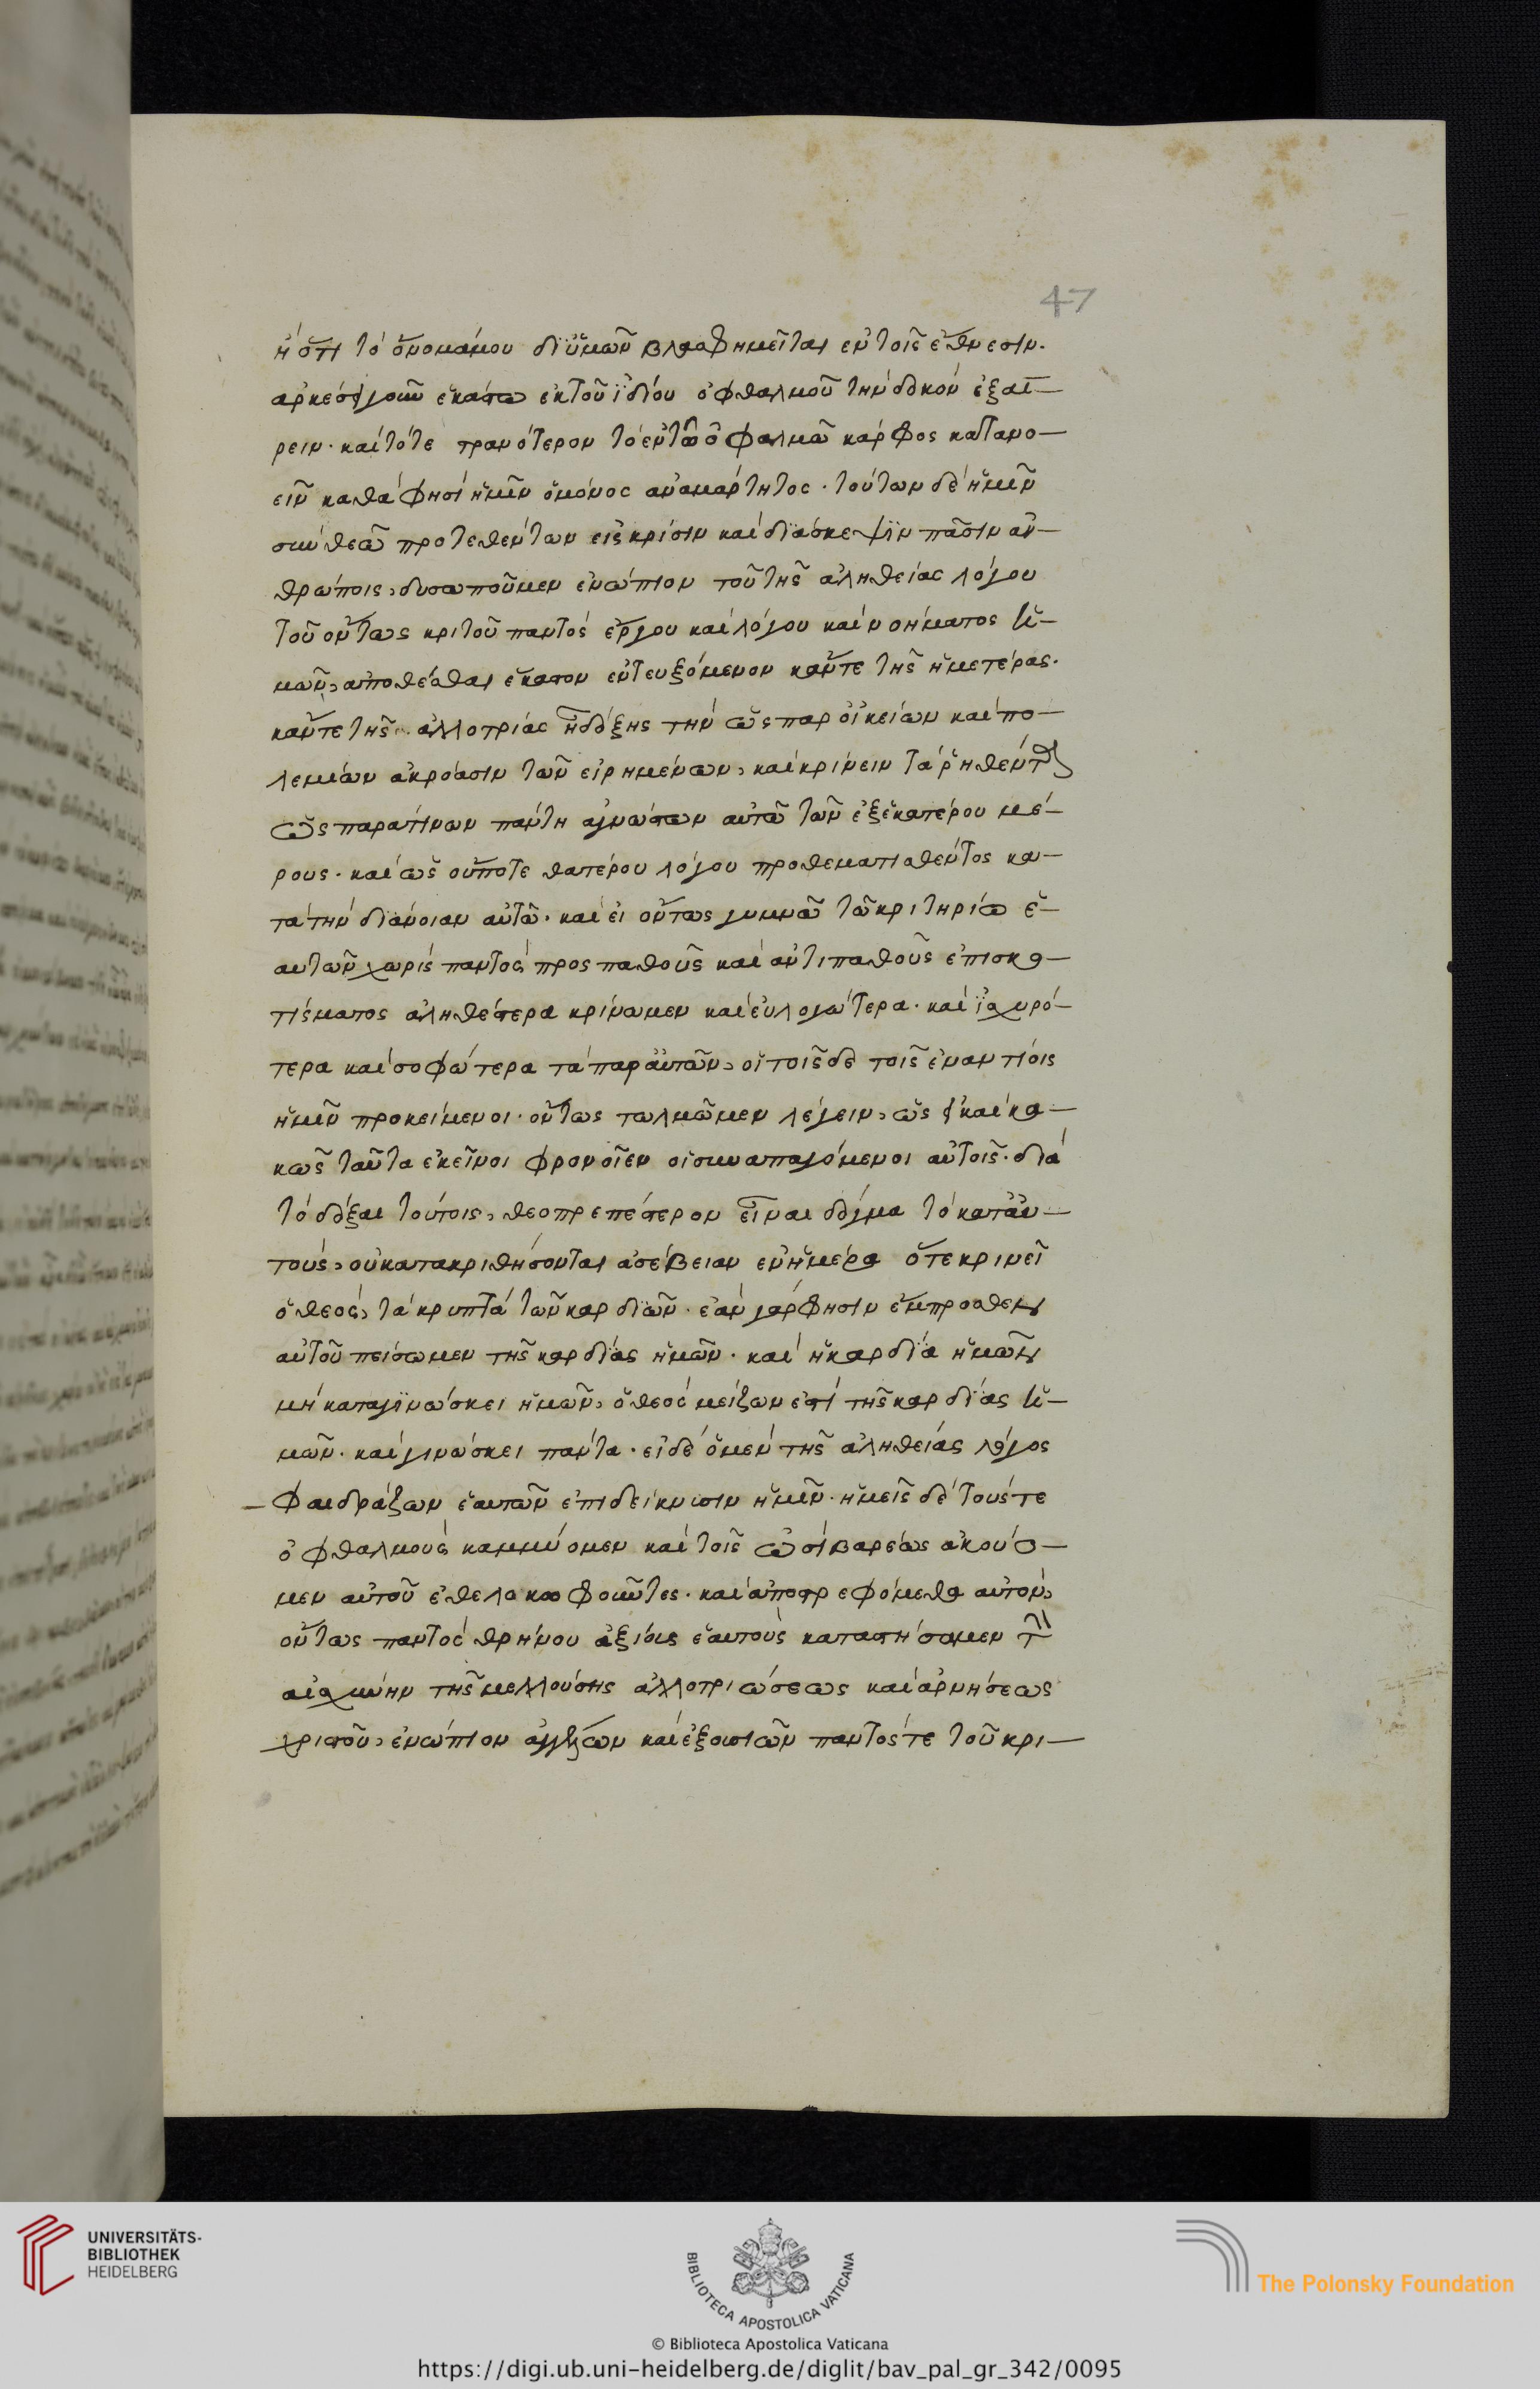 47
ἢ ὅτι τὸ ὄνομά μου δι ὑμῶν βλασφημεῖται ἐν τοῖς ἔθνεσιν.
ἀρκέσει γοῦν ἑκάστω ἐκ τοῦ ἰδίου ὀφθαλμοῦ τὴν δοκὸν ἐξαί-
ρειν· καὶ τότε τρανότερον τὸ ἐν τῶ ὀφθαλμῶ κάρφος κατανο-
εῖν καθά φησὶ ἡμῖν ὁ μόνος ἀναμάρτητος· τούτων δὲ ἡμῖν
σὺν θεῶ προτεθέντων εἰς κρίσιν καὶ διάσκεψιν πᾶσιν ἀν-
θρώποις, δυσωποῦμεν ἐνώπιον τοῦ τῆς ἀληθείας λόγου
τοῦ ὄντως κριτοῦ παντὸς ἔργου καὶ λόγου καὶ νοήματος ἡ-
μῶν, ἀποθέσθαι ἕκαστον ἐντευξόμενον κἄν τε τῆς ἡμετέρας.
κἄν τε τῆς ἀλλοτρίας ἦ δόξης τὴν ὡς παρ οἰκείων καὶ πο-
λεμίων ἀκρόασιν τῶν εἰρημένων, καὶ κρίνειν τὰ ῥηθέντα
ὡς παρά τινων πάντη ἀγνώστων αὐτῶ τῶν ἐξ ἑκατέρου μέ-
ρους· καὶ ὡς οὔποτε θατέρου λόγου προθεματισθέντος κα-
τὰ τὴν διάνοιαν αὐτῶ· καὶ εἰ οὕτως γυμνῶ τῶ κριτηρίω ἑ-
αυτῶν χωρὶς παντὸς προσπαθοῦς καὶ ἀντιπαθοῦς ἐπισκο-
τίσματος ἀληθέστερα κρίνωμεν καὶ εὐλογώτερα· καὶ ἰσχυρό-
τερα καὶ σοφώτερα τὰ παρ αὐτῶν, οἳ τοῖσδε τοῖς ἐναντίοις
ἡμῖν προκείμενοι· οὕτως τολμῶμεν λέγειν, ὡς εἰ καὶ κα-
κῶς ταῦτα ἐκεῖνοι φρονοῖεν οἱ συναπαγόμενοι αὐτοῖς· διὰ
τὸ δόξαι τούτοις, θεοπρεπέστερον εἶναι δόγμα τὸ κατ αὐ-
τοὺς, οὐ κατακριθήσονται ἀσέβειαν ἐν ἡμέρα ὅτε κρινεῖ
ὁ θεὸς, τὰ κρυπτὰ τῶν καρδιῶν· ἐὰν γάρ φησιν ἔμπροσθεν
αὐτοῦ πείσωμεν τῆς καρδίας ἡμῶν· καὶ ἡ καρδία ἡμῶν
μὴ καταγινώσκει ἡμῶν, ὁ θεὸς μείζων ἐστὶ τῆς καρδίας ἡ-
μῶν· καὶ γινώσκει πάντα· εἰ δὲ ὁ μὲν τῆς ἀληθείας λόγος
φαιδράζων ἑαυτῶν ἐπιδείκνυσιν ἡμῖν· ἡμεῖς δὲ τούς τε
ὀφθαλμοὺς καμμύομεν καὶ τοῖς ὠσὶ βαρέως ἀκούσ-
μεν αὐτοῦ ἐθελοκωφοῦντες· καὶ ἀποστρεφόμεθα αὐτὸν,
οὕτως παντὸς θρήνου ἀξίους ἑαυτοὺς καταστήσομεν τὴν
αἰσχύνην τῆς μελλούσης ἀλλοτριώσεως καὶ ἀρνήσεως
χριστοῦ, ἐνώπιον ἀγγέλων καὶ ἐξουσιῶν παντός τε τοῦ κρι-
UNIVERSITÄTS-
BIBLIOTHEK
HEIDELBERG
BIBLIOTECA APOSTOLICA VATICANA
The Polonsky Foundation
© Biblioteca Apostolica Vaticana
https://digi.ub.uni-heidelberg.de/diglit/bav_pal_gr_342/0095